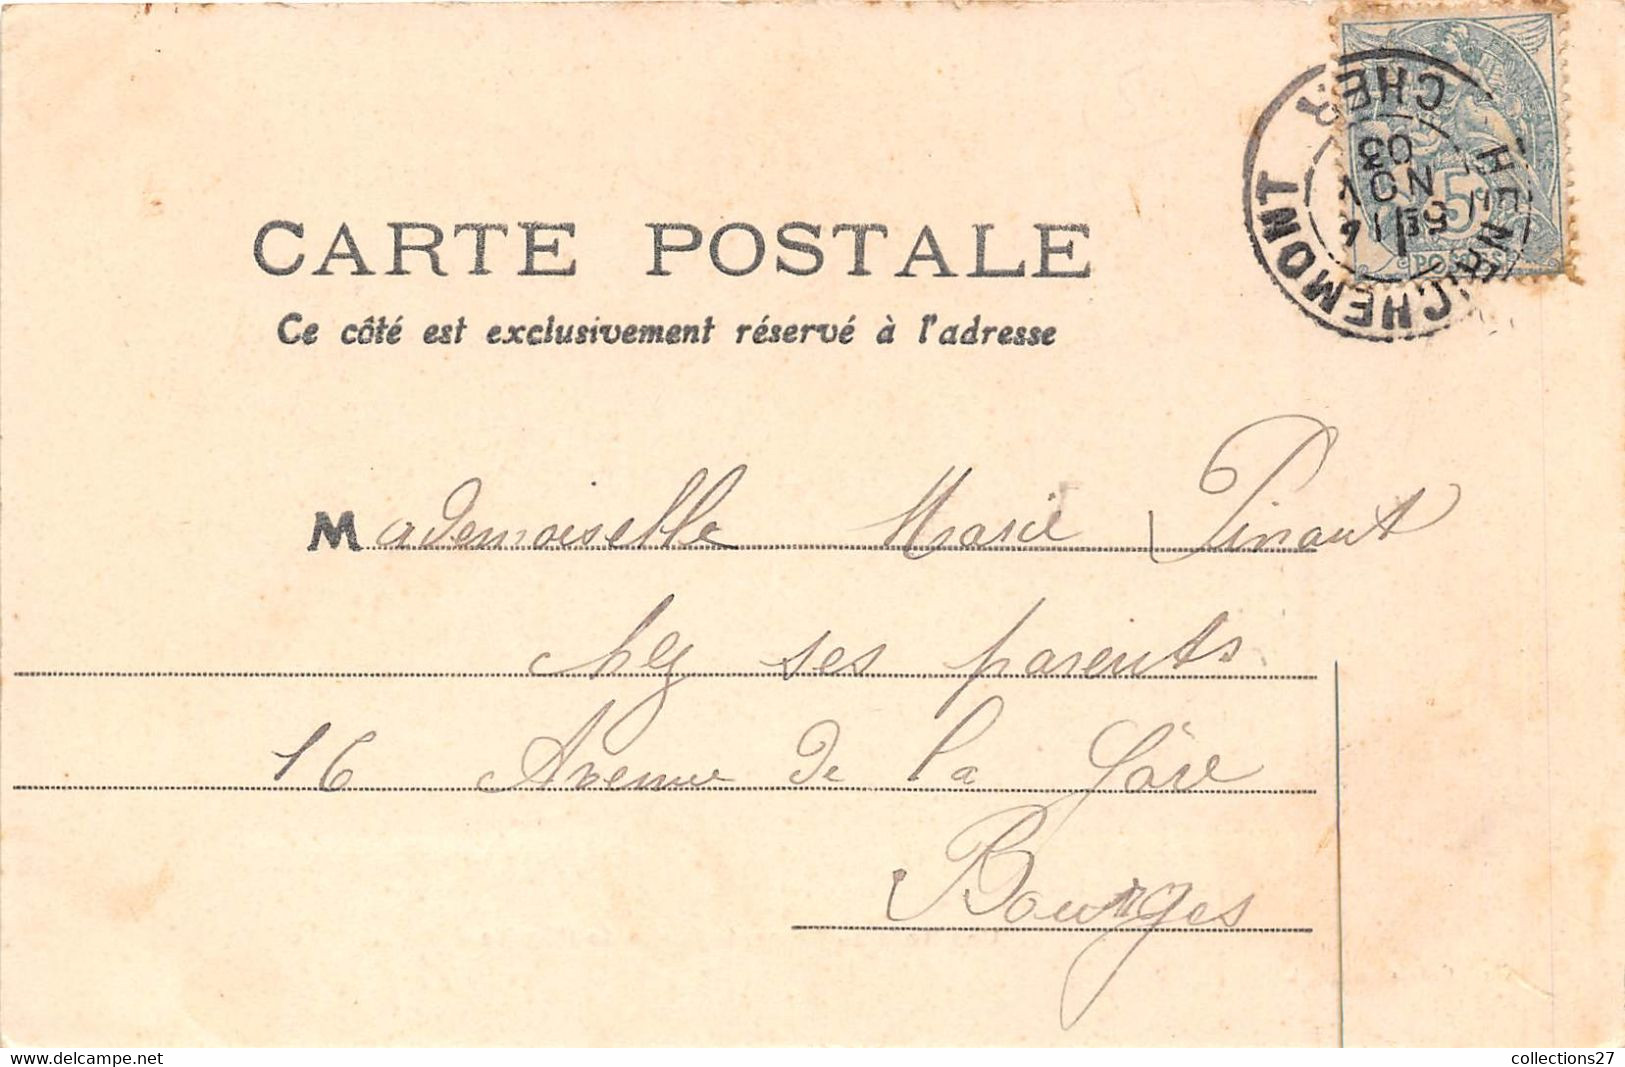 CARTE POSTALE
Ce côté est exclusivement réservé à l'adresse
HENRICHEMONT
CHER
NOV
03
5c
POSTES
Mademoiselle Marie Pinaut
chez ses parents
16 Avenue de la Gare
Bourges
collections27